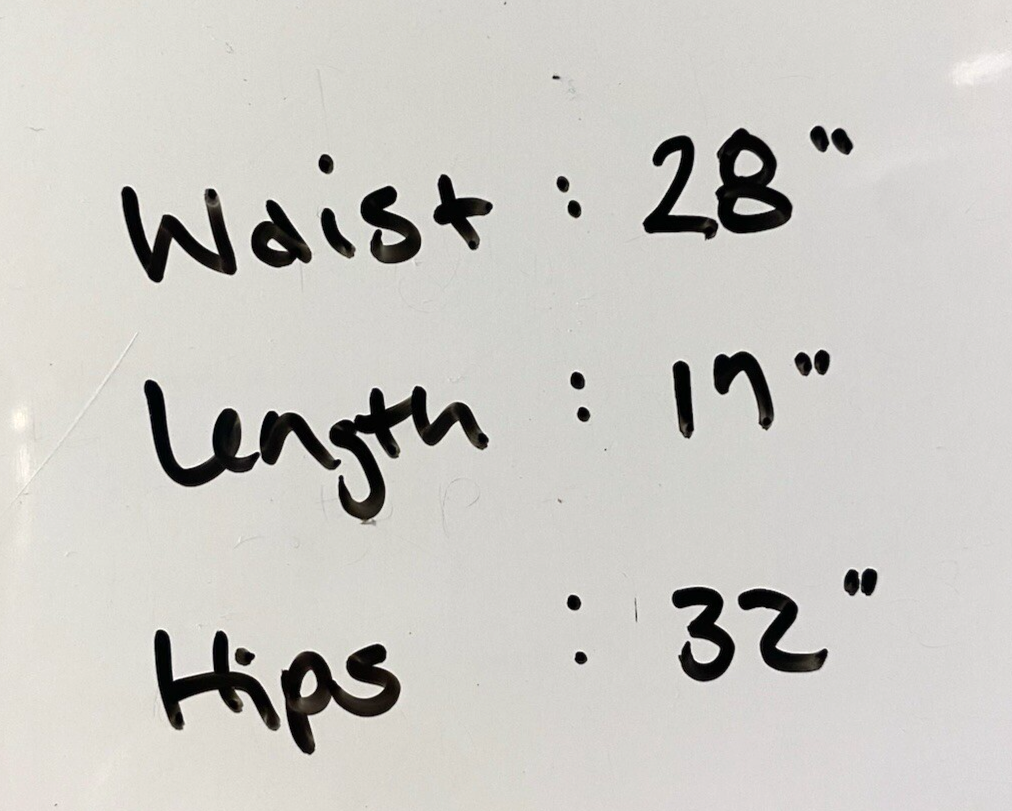 Waist : 28"
Length : 17"
Hips : 32"